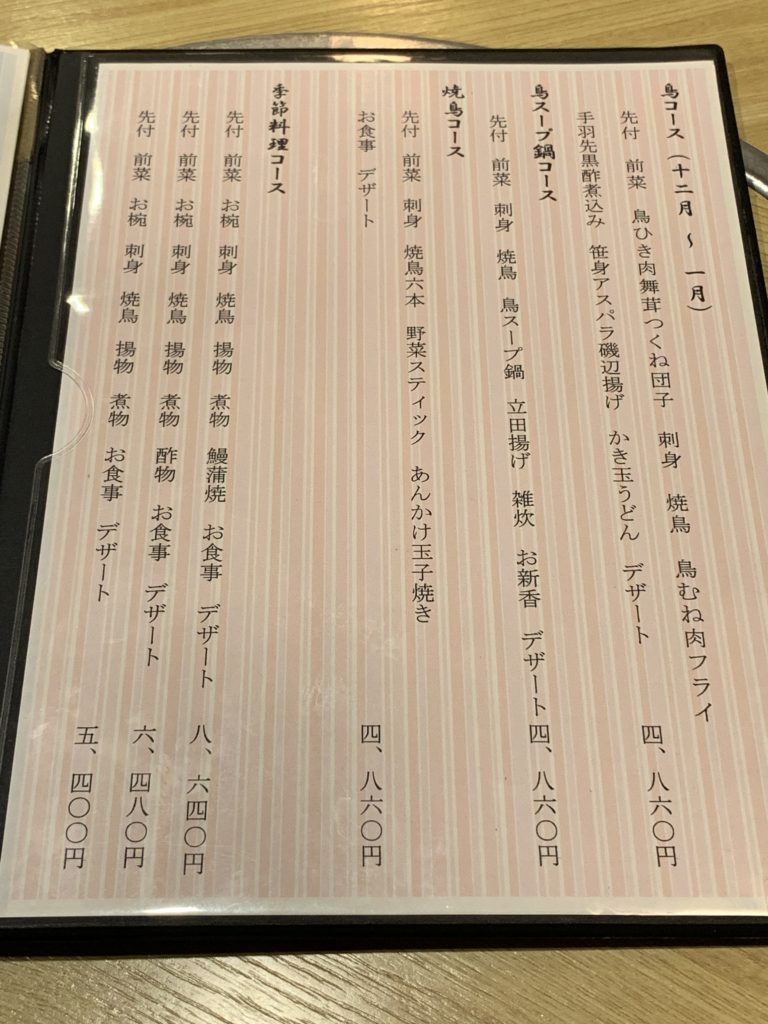 鳥コース(十二月 ~ 一月)
先付 前菜 鳥ひき肉舞茸つくね団子 刺身 焼鳥 鳥むね肉フライ
手羽先黒酢煮込み 笹身アスパラ磯辺揚げ かき玉うどん デザート 四、八六〇円
鳥スープ鍋コース
先付 前菜 刺身 焼鳥 鳥スープ鍋 立田揚げ 雑炊 お新香 デザート 四、八六〇円
焼鳥コース
先付 前菜 刺身 焼鳥六本 野菜スティック あんかけ玉子焼き
お食事 デザート 四、八六〇円
季節料理コース
先付 前菜 お椀 刺身 焼鳥 揚物 煮物 鰻蒲焼 お食事 デザート 八、六四〇円
先付 前菜 お椀 刺身 焼鳥 揚物 煮物 酢物 お食事 デザート 六、四八〇円
先付 前菜 お椀 刺身 焼鳥 揚物 煮物 お食事 デザート 五、四〇〇円